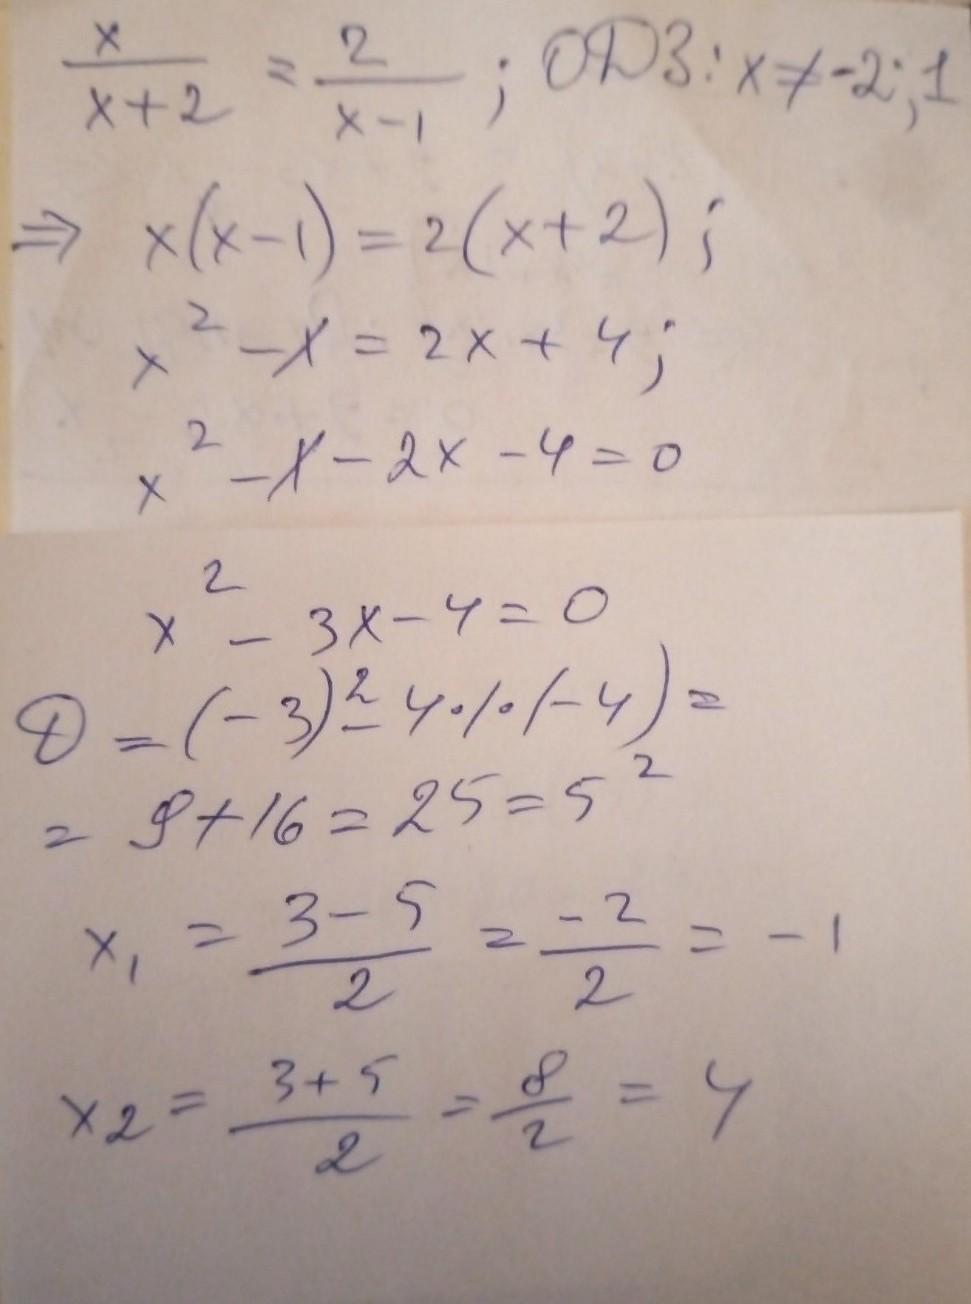 x/(x+2) = 2/(x-1) ; ОДЗ: x≠-2; 1
⇒ x(x-1) = 2(x+2) ;
x² - x = 2x + 4 ;
x² - x - 2x - 4 = 0
x² - 3x - 4 = 0
D = (-3)² - 4·1·(-4) =
= 9+16 = 25 = 5²
x₁ = (3-5)/2 = -2/2 = -1
x₂ = (3+5)/2 = 8/2 = 4